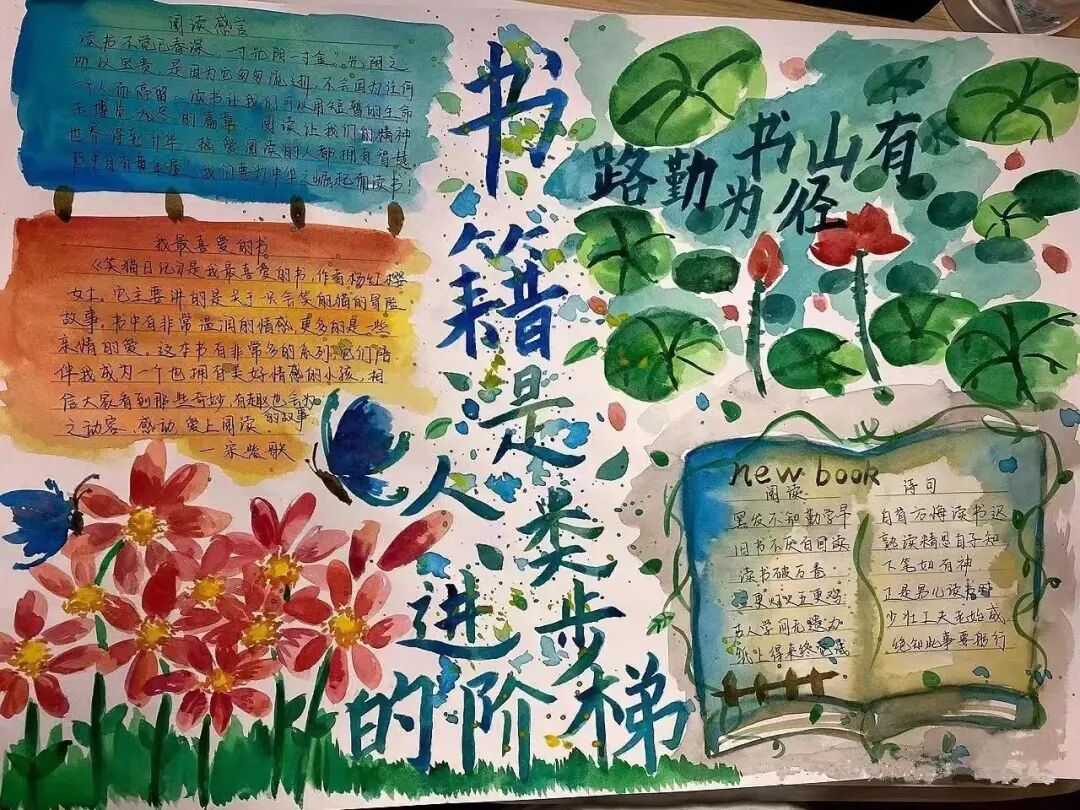 阅读感言
读书不觉已春深,一寸光阴一寸金。光阴之
所以宝贵,是因为它匆匆流逝,不会因为任何
一个人而停留。读书让我们可以用短暂的生命
去博览无尽的篇章,阅读让我们的精神
世界得到升华,热爱阅读的人都拥有智慧
书中自有黄金屋,我们要为中华之崛起而读书!
我最喜爱的书
《笑猫日记》是我最喜爱的书,作者杨红樱
女士。它主要讲的是关于一只会笑的猫的冒险
故事。书中有非常温润的情感,更多的是一些
亲情的爱。这本书有非常多的系列,它们陪
伴我成为一个也拥有美好情感的小孩,相
信大家看到那些奇妙有趣的故事也会为
之动容、感动,爱上阅读。
书籍是人类进步的阶梯
书山有
路勤为径
new book
阅读 诗句
黑发不知勤学早 白首方悔读书迟
旧书不厌百回读 熟读精思自子知
读书破万卷 下笔如有神
三更灯火五更鸡 正是男儿读书时
古人学问无遗力 少壮工夫老始成
纸上得来终觉浅 绝知此事要躬行